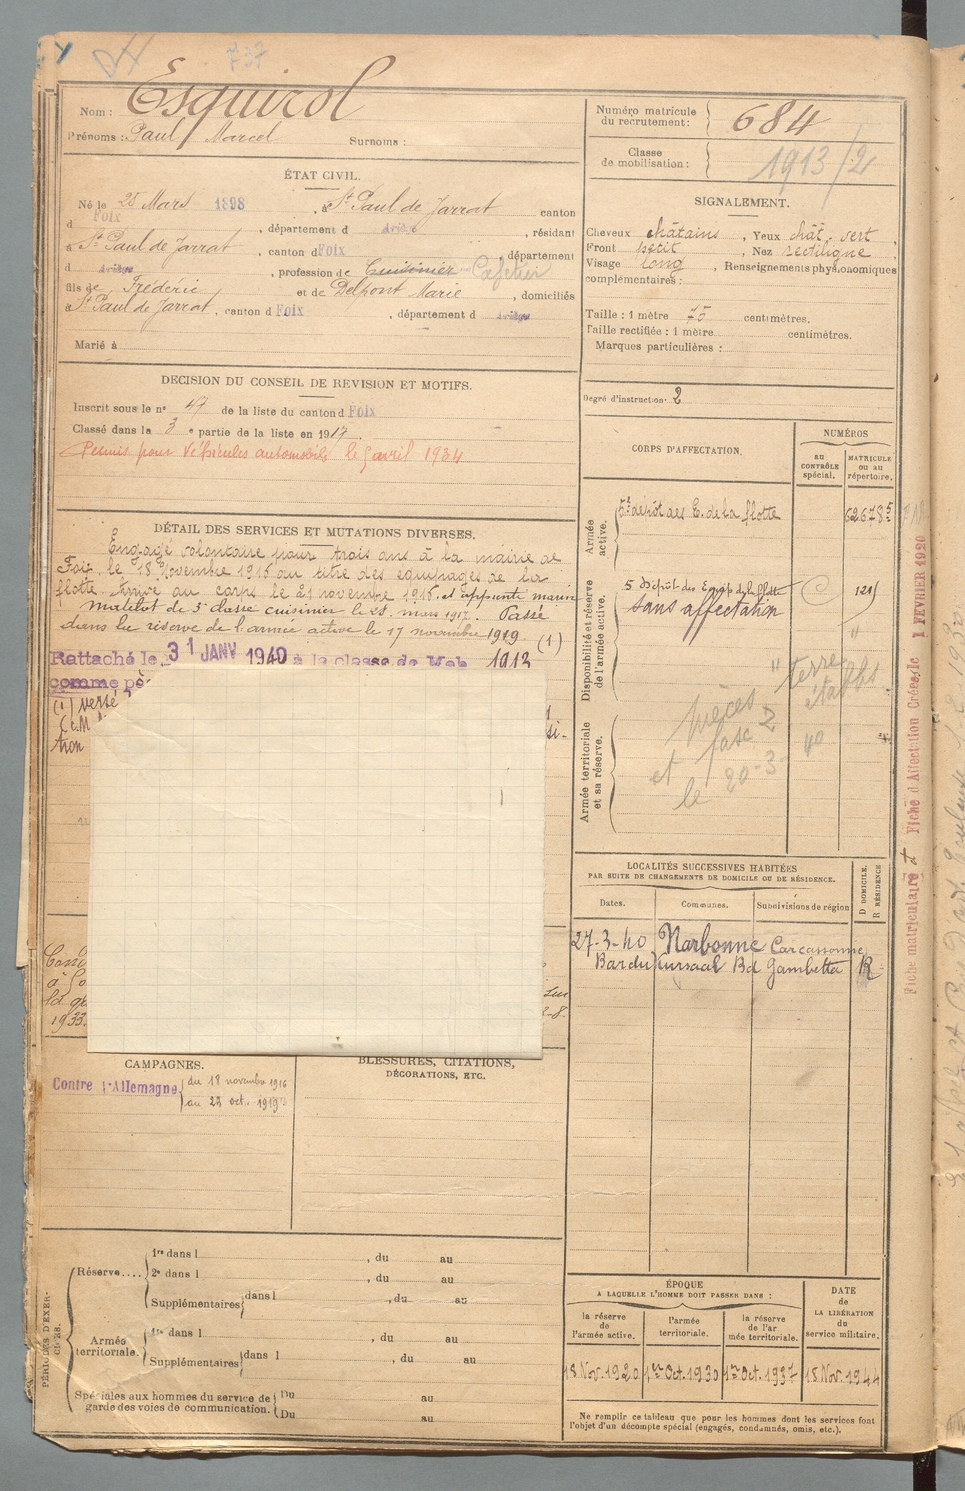 737
Nom : Esquirol
Prénoms : Paul Marcel Surnoms :
ÉTAT CIVIL.
Né le 25 Mars 1898, à St Paul de Jarrat canton
d Foix, département d Ariège, résidant
à St Paul de Jarrat, canton d Foix département
d Ariège, profession de Cuisinier Cafetier
fils de Frédéric et de Delpont Marie, domiciliés
à St Paul de Jarrat, canton d Foix, département d Ariège
Marié à
DECISION DU CONSEIL DE REVISION ET MOTIFS.
Inscrit sous le n° 47 de la liste du canton d Foix
Classé dans la 3 e partie de la liste en 1917.
Permis pour Véhicules automobils le 5 avril 1934
DÉTAIL DES SERVICES ET MUTATIONS DIVERSES.
Engagé volontaire pour trois ans à la mairie de
Foix, le 18 Novembre 1916 au titre des équipages de la
flotte. Arrivé au corps le 21 novembre 1916. et apprenti marin
matelot de 3e classe cuisinier le 28 mars 1917. Passé
dans la réserve de l'armée active le 17 novembre 1919 (1)
Rattaché le 31 JANV 1940 à la classe de Mob 1912
comme pè
(1) versé
tion si-
à
1933. 2-8.
CAMPAGNES.
Contre l'Allemagne du 18 novembre 1916
au 22 oct. 1919
BLESSURES, CITATIONS,
DÉCORATIONS, ETC.
PÉRIODES D'EXER-
CICES.
Réserve....
1re dans l , du au
2e dans l , du au
Supplémentaires dans l , du au
Armée
territoriale.
1re dans l , du au
Supplémentaires dans l , du au
Spéciales aux hommes du service de
garde des voies de communication.
Du au
Du au
Numéro matricule
du recrutement : 684
Classe
de mobilisation : 1913/2
SIGNALEMENT.
Cheveux châtains, Yeux chât. vert,
Front petit, Nez rectiligne,
Visage long, Renseignements physionomiques
complémentaires :
Taille : 1 mètre 75 centimètres.
Taille rectifiée : 1 mètre centimètres.
Marques particulières :
Degré d'instruction : 2
CORPS D'AFFECTATION.
NUMÉROS
AU
CONTRÔLE
spécial.
MATRICULE
ou au
répertoire.
Armée
active.
5e dépôt des E. de la flotte 62678 5
Disponibilité et réserve
de l'armée active.
5 Dépôt des Equip de la flotte
sans affectation
Armée territoriale
et sa réserve.
pièces
et fasc 2
le 20-3-40
LOCALITÉS SUCCESSIVES HABITÉES
PAR SUITE DE CHANGEMENTS DE DOMICILE OU DE RÉSIDENCE.
Dates. Communes. Subdivisions de région
D DOMICILE.
R RÉSIDENCE
27-3-40 Narbonne Carcassonne
Bar du Kursaal Bd Gambetta R
ÉPOQUE
A LAQUELLE L'HOMME DOIT PASSER DANS :
la réserve
de
l'armée active.
l'armée
territoriale.
la réserve
de l'ar
mée territoriale.
DATE
de
LA LIBÉRATION
du
service militaire.
18 Nov. 1920 1er Oct. 1930 1er Oct. 1937 18 Nov. 1944
Ne remplir ce tableau que pour les hommes dont les services font
l'objet d'un décompte spécial (engagés, condamnés, omis, etc.).
Fiche matriculaire et Fiche d'Affectation Créées le 1 FEVRIER 1920